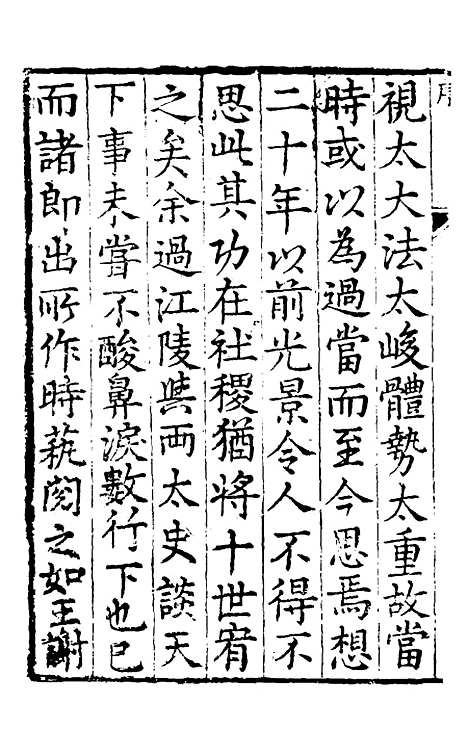 視太大法太峻體勢太重故當
時或以為過當而至今思焉想
二十年以前光景令人不得不
思此其功在社稷猶將十世宥
之矣余過江陵與两太史談天
下事未嘗不酸鼻淚數行下也已
而諸郎出所作時蓺閱之如王謝